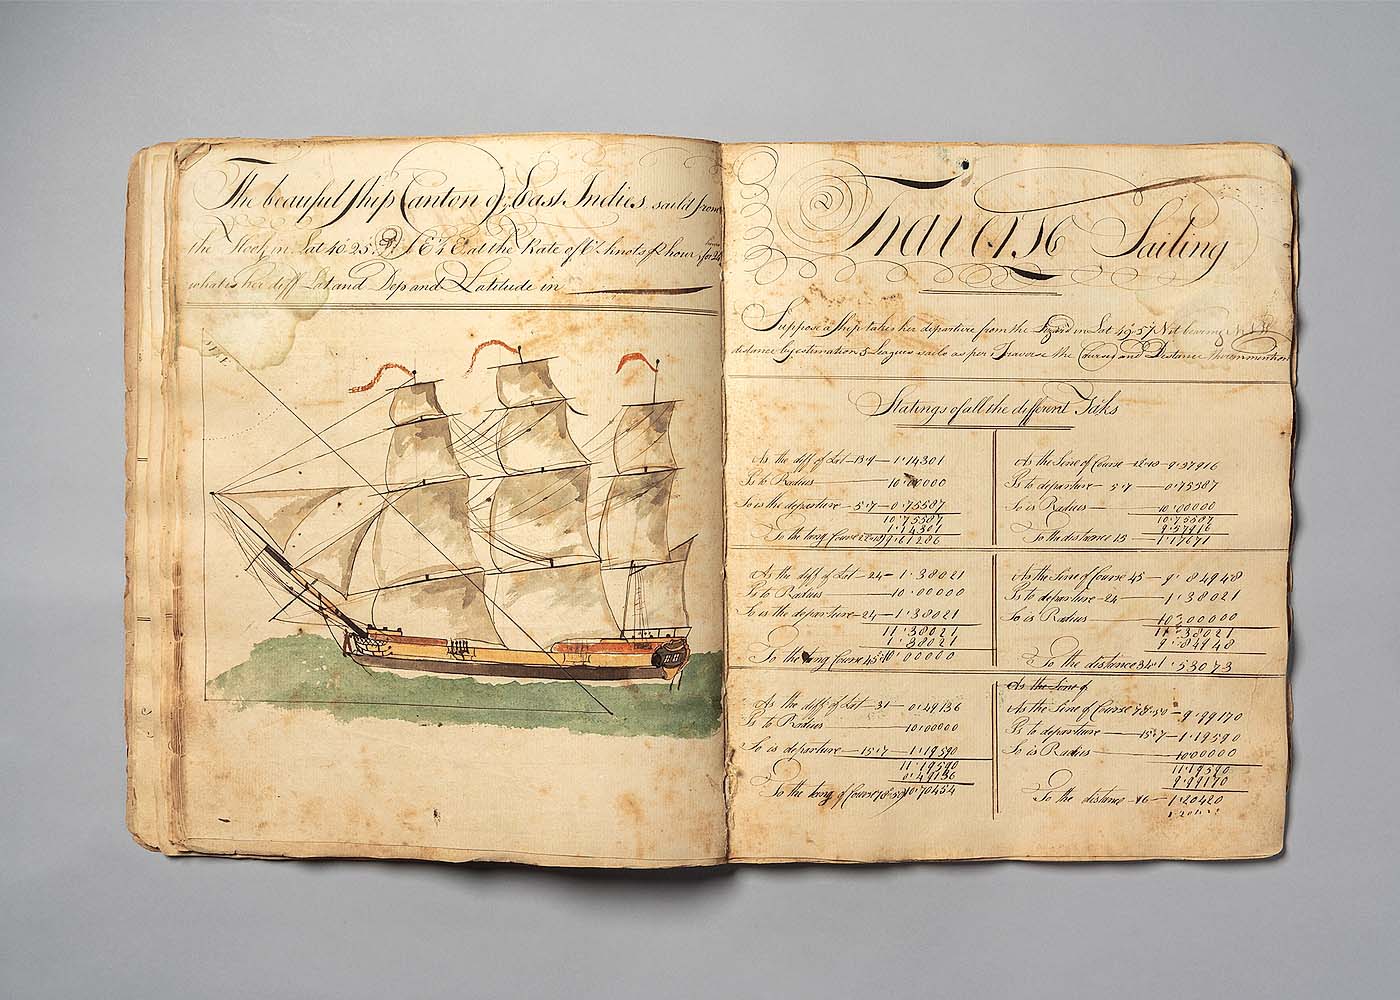 The beauiful Ship Canton of East Indies sail'd from
the Hook in Lat 40.25 E¼E at the Rate of knots hour for 24
hours
what is her diff Lat and Dep and Latitude in
Traverse Sailing
Suppose a Ship takes her departure from the Lizard in Lat 49.57 Not bearing
distance by estimation 5 Leagues sails as per Traverse the Courses and Distance
Statings of all the different Taks
As the diff of Lat 13.9 1.14301
Is to Radius 10.00000
So is the departure 5.7 0.75587
10.75587
1.14301
To the tang Course 9.61286
As the Sine of Course 9.57916
Is to departure 5.7 0.75587
So is Radius 10.00000
10.75587
9.57916
To the distance 15 1.17671
As the diff of Lat 24 1.38021
Is to Radius 10.00000
So is the departure 24 1.38021
11.38021
1.38021
To the tang Course 45 10.00000
As the Sine of Course 45 9.84948
Is to departure 24 1.38021
So is Radius 10.00000
11.38021
9.84948
To the distance 34 1.53073
As the diff of Lat 31 0.49136
Is to Radius 10.00000
So is departure 15.7 1.19590
11.19590
0.49136
To the tang of Course 78.50 10.70454
As the Sine of
As the Sine of Course 78.50 9.99170
Is to departure 15.7 1.19590
So is Radius 10.00000
11.19590
9.99170
To the distance 16 1.20420